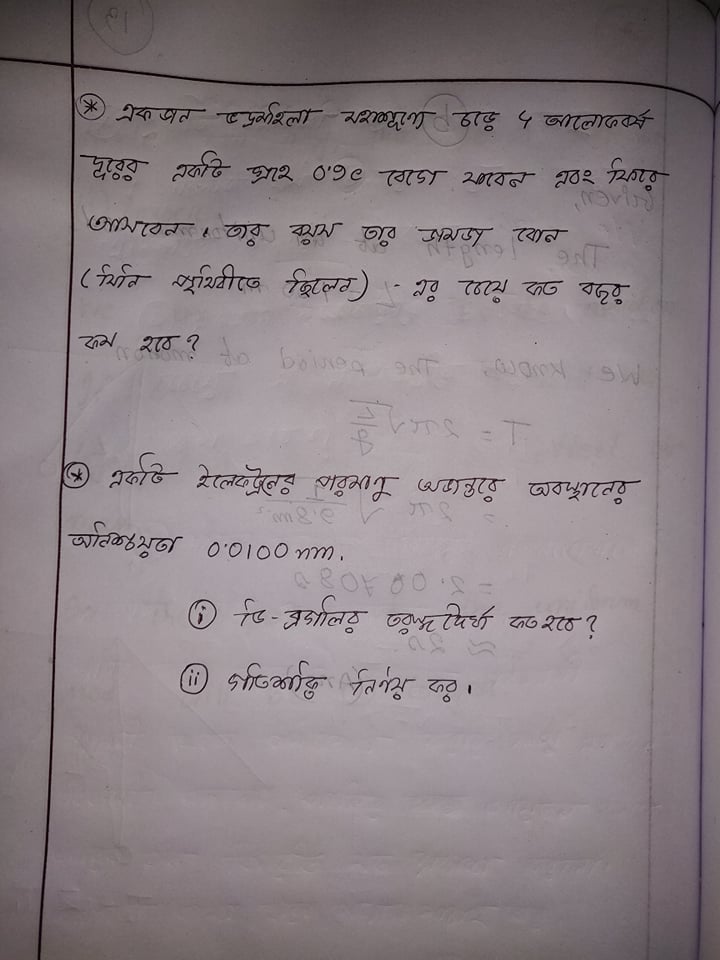 * একজন ভদ্রমহিলা মহাশূন্যে চড়ে ৭ আলোকবর্ষ
দূরের একটি গ্রহে ০.৭c বেগে যাবেন এবং ফিরে
আসবেন। তার বয়স তার জমজ বোন
(যিনি পৃথিবীতে ছিলেন) - এর চেয়ে কত বছর
কম হবে?
* একটি ইলেকট্রনের পরমাণু অভ্যন্তরে অবস্থানের
অনিশ্চয়তা 0.0100 nm.
i ডি-ব্রগলির তরঙ্গদৈর্ঘ্য কত হবে?
ii গতিশক্তি নির্ণয় কর।